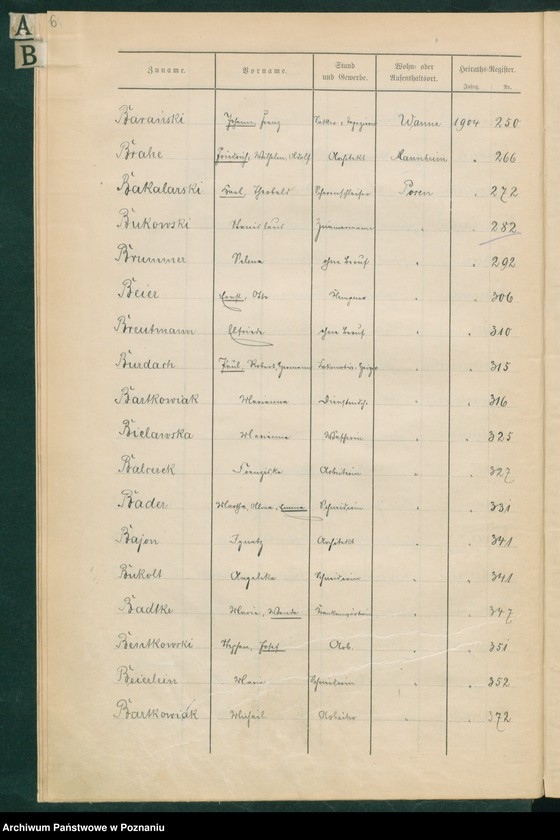 A
B
6
Zuname. Vorname. Stand und Gewerbe. Wohn- oder Aufenthaltsort. Heiraths-Register.
Jahrg. Nr.
Barański Johann Franz Wanne 1904 250
Brahe Friedrich, Wilhelm, Adolf Architekt Mannheim " 266
Bakalarski Theobald Posen " 272
Bukowski Stanislaus Zimmermann " " 282
Brummer Selma ohne Beruf " " 292
Beier Ernst, Otto " " 306
Breutmann Elfriede ohne Beruf " " 310
Burdach Paul, Robert, Hermann Lokomotiv-Heizer " " 315
Bartkowiak Marianna Dienstmdch. " " 316
Bielawska Marianna " " 325
Balcerek Franziska Arbeiterin " " 327
Bader Martha, Alma, Emma Schneiderin " " 331
Bajon Ignatz Architekt " " 341
Bukolt Angelika Schneiderin " " 341
Badtke Maria, Wanda " " 347
Bentkowski Stephan, Josef Arb. " " 351
Beierlein Schneiderin " " 352
Bartkowiak Michael Arbeiter " 372
Archiwum Państwowe w Poznaniu